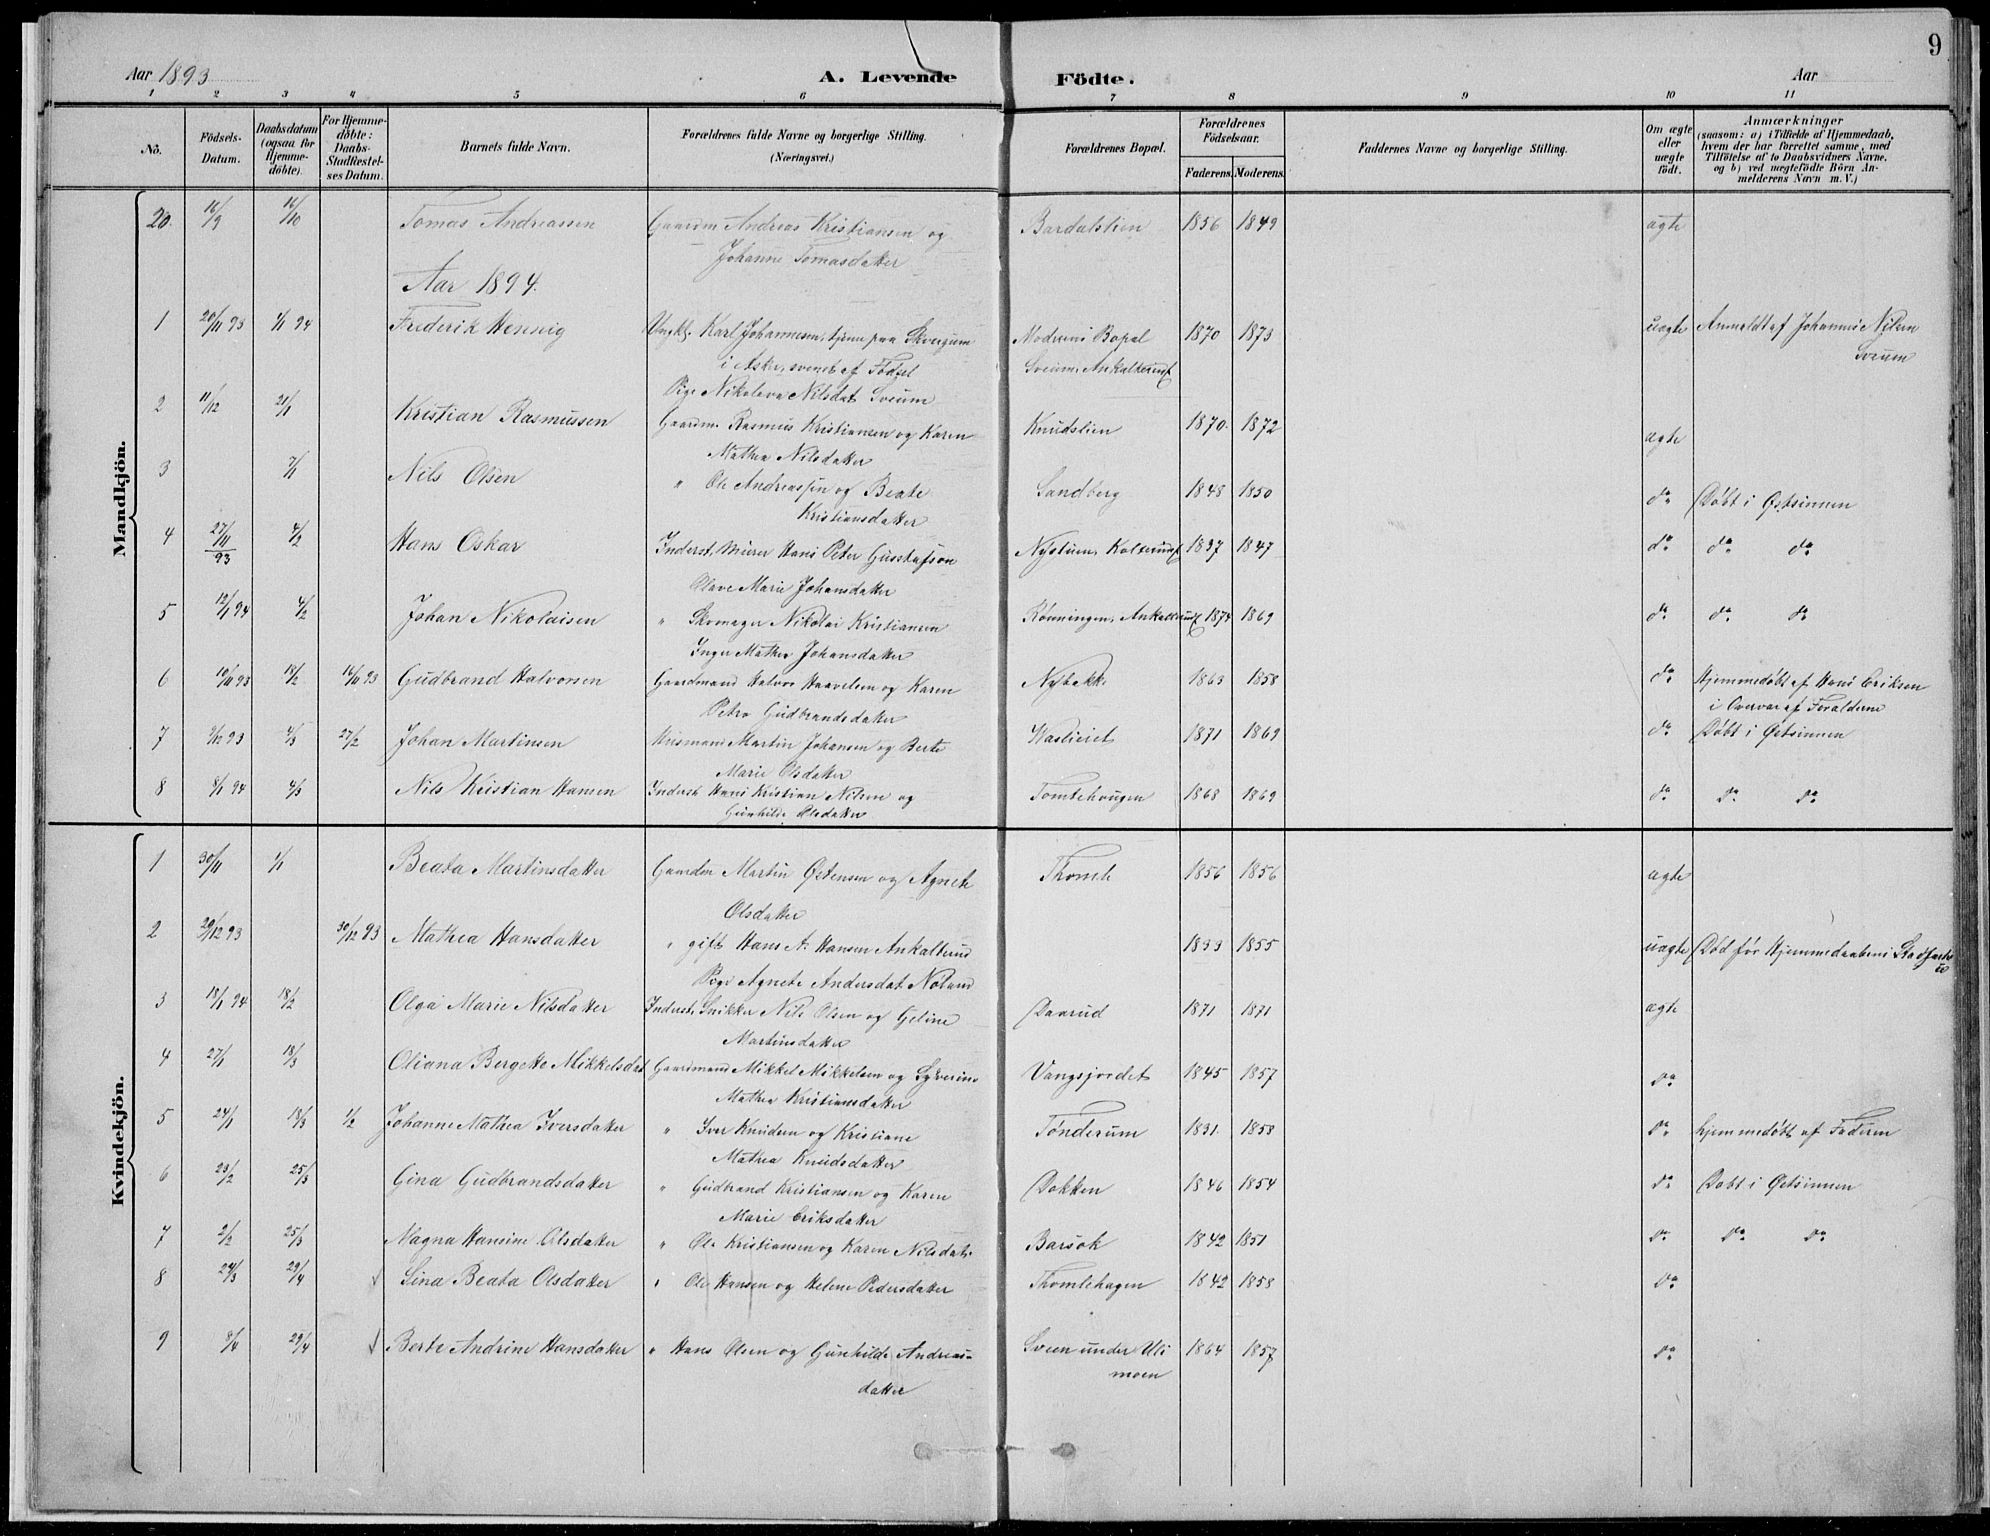 9
Aar 1893
A. Levende Födte.
Aar
1 2 3 4 5 6 7 8 9 10 11
No.
Födsels-Datum.
Daabsdatum (ogsaa for Hjemmedöbte).
For Hjemmedöbte: Daabs-Stadfæstelses Datum.
Barnets fulde Navn.
Forældrenes fulde Navne og borgerlige Stilling.
(Næringsvei.)
Forældrenes Bopæl.
Forældrenes Födselsaar.
Faderens. Moderens.
Faddernes Navne og borgerlige Stilling.
Om ægte eller uægte födt.
Anmærkninger
(saasom: a) i Tilfælde af Hjemmedaab, hvem der har forrettet samme, med Tilföielse af to Daabsvidners Navne, og b) ved uægtefödte Börn Anmelderens Navn m. V.)
Mandkjön.
20. 16/9 16/10 Tomas Andreassen Gaardm Andreas Kristiansen og Bardalslien 1856 1849 ægte
Johanne Tomasdatter
Aar 1894.
1 20/11 93 1/1 94 Frederik Hennig Ungk. Karl Johannesen, tjene paa Skvegum Modrens Bopæl 1870 1873 uægte Anmeldt af Johannes Nilsen
i Asker, svensk af Fødsel Sveum, Ankalterud Sveum
Pige Nikoleva Nilsdat Sveum
2 11/12 21/1 Kristian Rasmussen Gaardm. Rasmus Kristiansen og Karen Knudslien 1870. 1872 ægte
Mathea Nilsdatter
3 7/1 Nils Olsen " Ole Andreassen og Beate Sandberg 1848 1850 do Døbt i Østsinnen
Kristiansdatter
4 27/11 93 4/2 Hans Oskar Inderst, Murer Hans Peter Gustafson Nystuen, Kolterud 1837 1847 do do do
Olave Marie Johansdatter
5 12/1 94 4/2 Johan Nikolaisen " Skomager Nikolai Kristiansen Rønningen, Ankalterud 1874 1869 do do do
Inger Mathea Johansdatter
6 10/11 93 18/2 16/11 93 Gudbrand Halvorsen Gaardmand Halvor Haavelsen og Karen Nybakke 1863 1858 do Hjemmedøbt af Hans Eriksen
Petra Gudbrandsdatter i Overvær af Forældrene
7 9/12 93 4/3 27/2 Johan Martinsen Husmand Martin Johansen og Berte Haslieiet 1871 1869 do Døbt i Østsinnen
Marie Olsdatter
8 8/1 94 4/3 Nils Kristian Hansen Inderst Hans Kristian Nilsen og Tomtehaugen 1868 1869 do do do
Gunhilde Olsdatter
Kvindekjön.
1 30/11 1/1 Beata Martinsdatter Gaardm Martin Østensen og Agnete Thomle 1856 1856 ægte
Olsdatter
2 29/12 93 30/12 93 Mathea Hansdatter " gift Hans A. Hansen Ankalterud 1833 1855 uægte Død før Hjemmedaabens Stadfæstelse
Pige Agnete Andersdat Nølund
3 18/1 94 18/2 Olga Marie Nilsdatter Inderst, Snikker Nils Olsen og Geline Daarud 1871 1871 ægte
Martinsdatter
4 27/1 18/3 Oliana Bergette Mikkelsdat Gaardmand Mikkel Mikkelsen og Syverine Vangsjordet 1845 1857 do
Mathea Kristiansdatter
5 24/1 18/3 1/2 Johanne Mathea Iversdatter " Iver Knudsen og Kristiane Tønderum 1831. 1853 do hjemmedøbt af Faderen
Mathea Knudsdatter
6 23/2 25/3 Gina Gudbrandsdatter " Gudbrand Kristiansen og Karen Dokken 1846 1854 do Døbt i Østsinnen
Marie Eriksdatter
7 2/2 25/3 Magna Hansine Olsdatter " Ole Kristiansen og Karen Nilsdat. Barsok 1842 1851 do do do
8 24/3 29/4 Sina Beata Olsdatter " Ole Hansen og Helene Pedersdatter Thomlehagen 1842 1858 do
9 8/4 29/4 Berte Andrine Hansdatter " Hans Olsen og Gunhilde Andreas- Sveen under Uls 1864 1857 do
datter moen